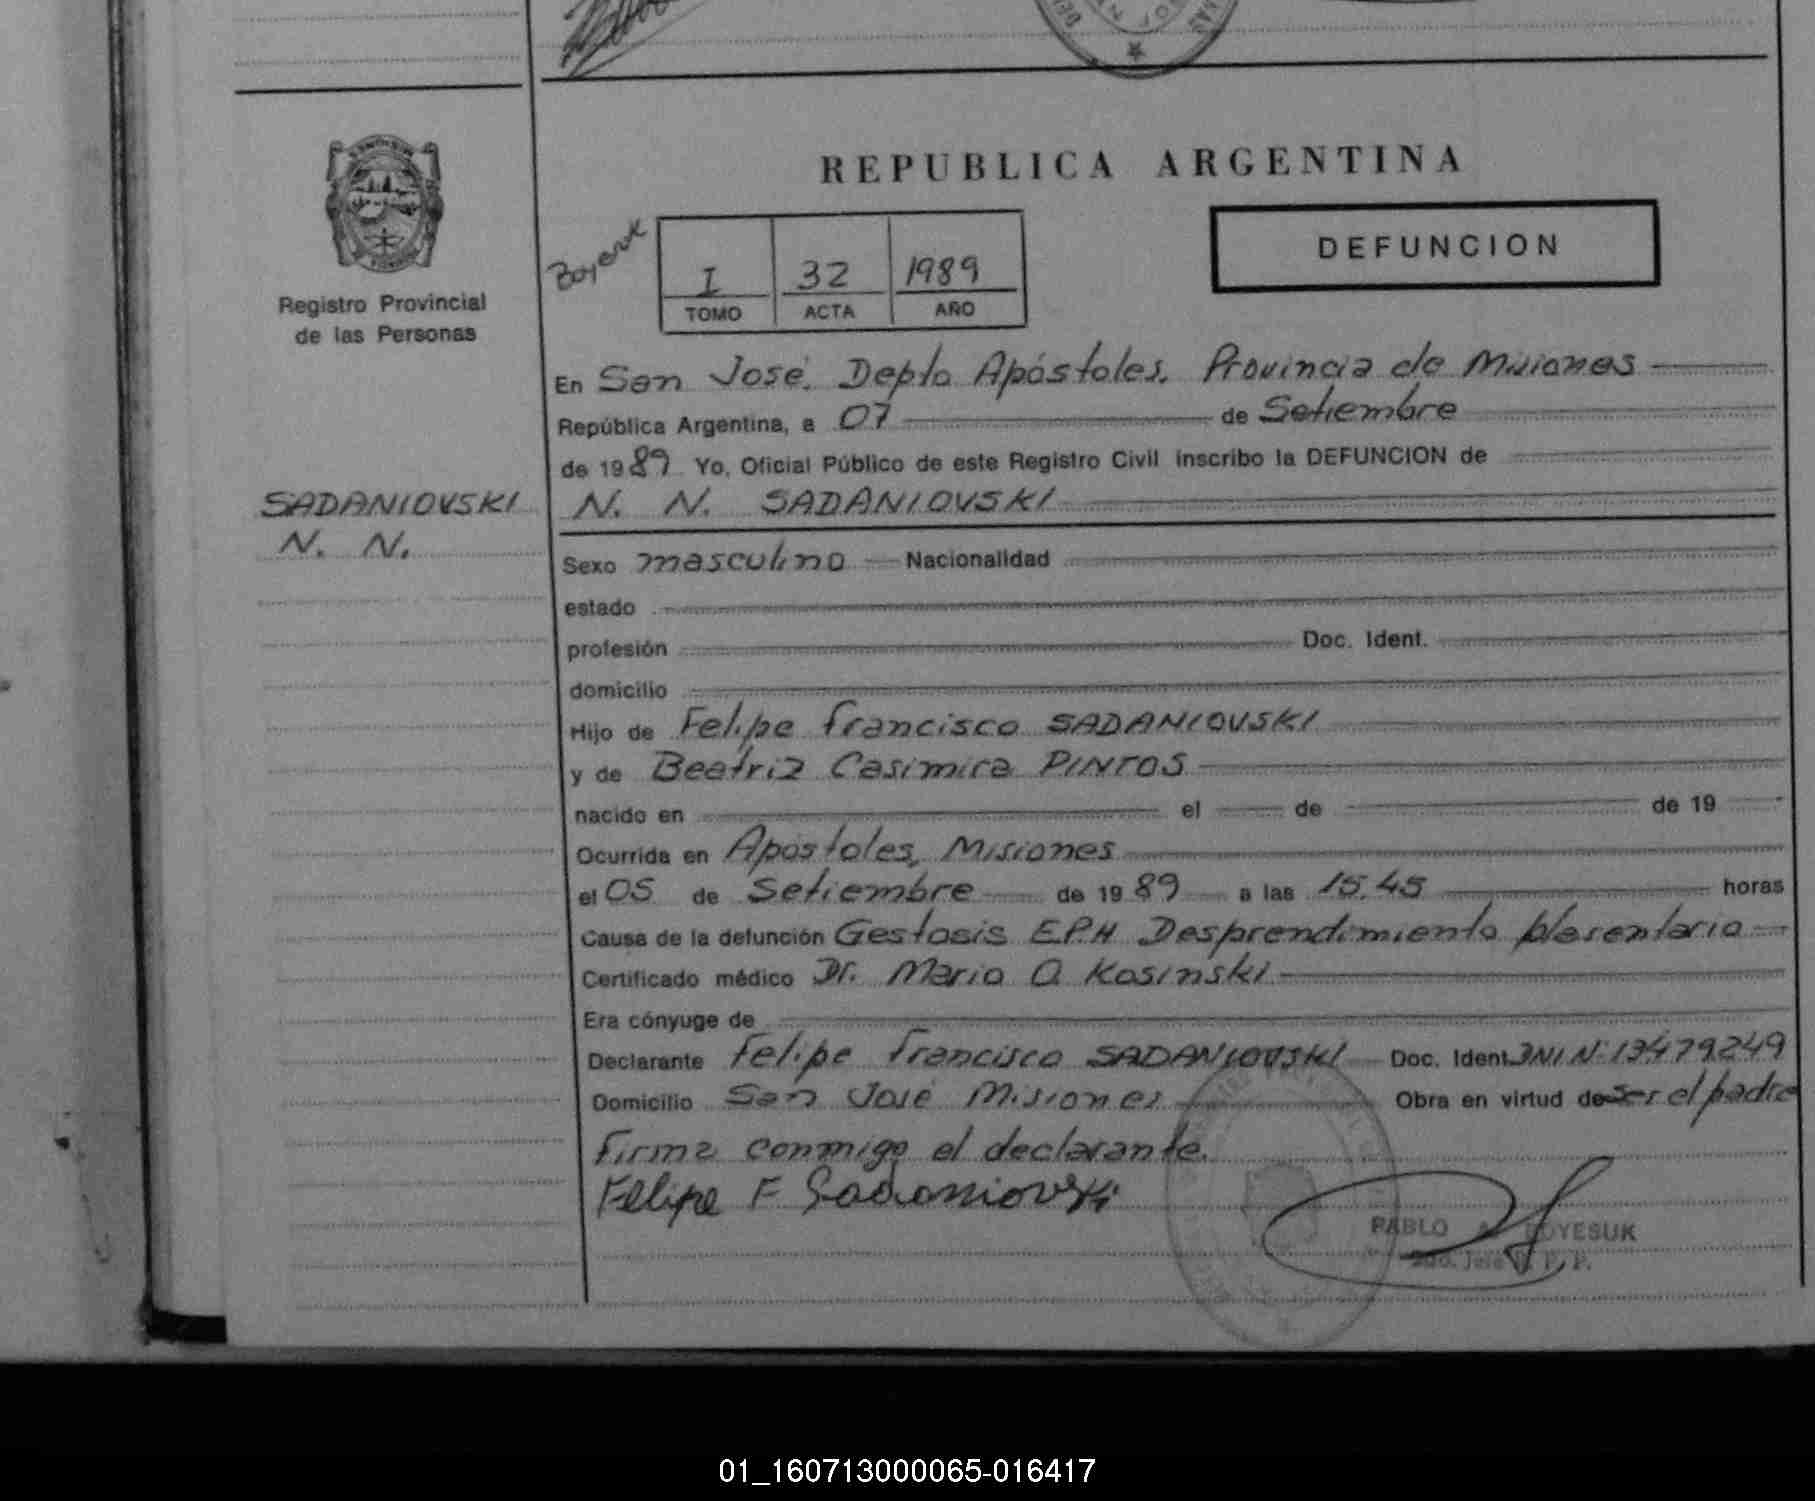 REPUBLICA ARGENTINA
DEFUNCION
I 32 1989
TOMO ACTA AÑO
Registro Provincial
de las Personas
En San José, Depto Apóstoles, Provincia de Misiones
República Argentina, a 07 de Setiembre
de 1989 Yo, Oficial Público de este Registro Civil inscribo la DEFUNCION de
SADANIOVSKI
N. N.
N. N. SADANIOVSKI
Sexo masculino Nacionalidad
estado
profesión Doc. Ident.
domicilio
Hijo de Felipe Francisco SADANIOVSKI
y de Beatriz Casimira PINTOS
nacido en el de de 19
Ocurrida en Apóstoles, Misiones
el 05 de Setiembre de 1989 a las 15.45 horas
Causa de la defunción Gestosis E.P.H Desprendimiento placentario
Certificado médico Dr. Mario O Kosinski
Era cónyuge de
Declarante Felipe Francisco SADANIOVSKI Doc. Ident. DNI Nº 13479249
Domicilio San José Misiones Obra en virtud de ser el padre
Firma conmigo el declarante.
Felipe F Sadaniovski
PABLO A. BOYESUK
R. P. P.
01_160713000065-016417